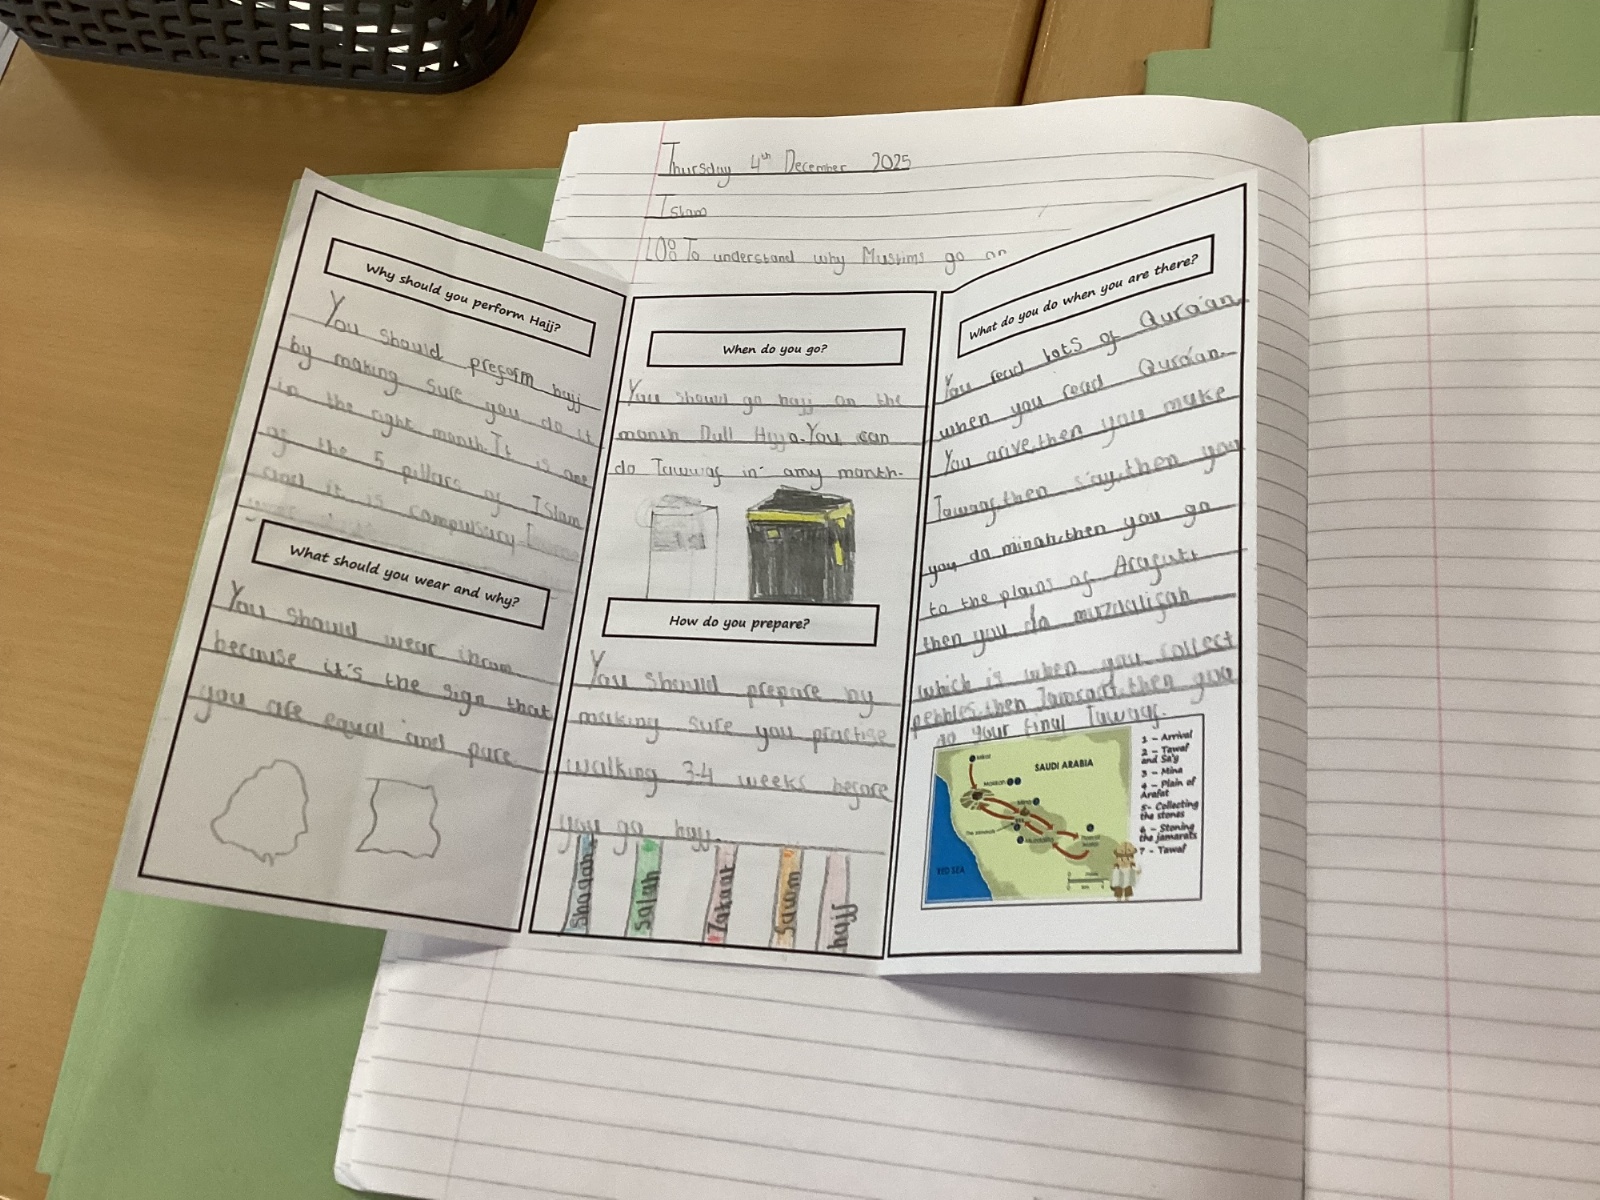 Thursday 4th December 2025
Islam
LO: To understand why Muslims go on
Why should you perform Hajj?
You should preform hajj
by making sure you do it
in the right month. It is one
of the 5 pillars of Islam
and it is compulsury.
What should you wear and why?
You should wear ihram
because it's the sign that
you are equal and pure
When do you go?
You should go hajj on the
month Dull Hijja. You can
do Tawwaf in any month.
How do you prepare?
You should prepare by
making sure you practise
walking 3-4 weeks before
you go hajj.
Shadah
Salah
Zakaat
Sawm
hajj
What do you do when you are there?
You read lots of Qura'an
when you read Qura'an.
You arive, then you make
Tawaf, then s'ay, then you
you do minah, then you go
to the plains of Arafat
then you do muzdalifah
which is when you collect
pebbles, then Jamraat, then you
do your final Tawaf.
SAUDI ARABIA
RED SEA
1 - Arrival
2 - Tawaf
and Sa'y
3 - Mina
4 - Plain of
Arafat
5- Collecting
the stones
6 - Stoning
the jamarats
7 - Tawaf